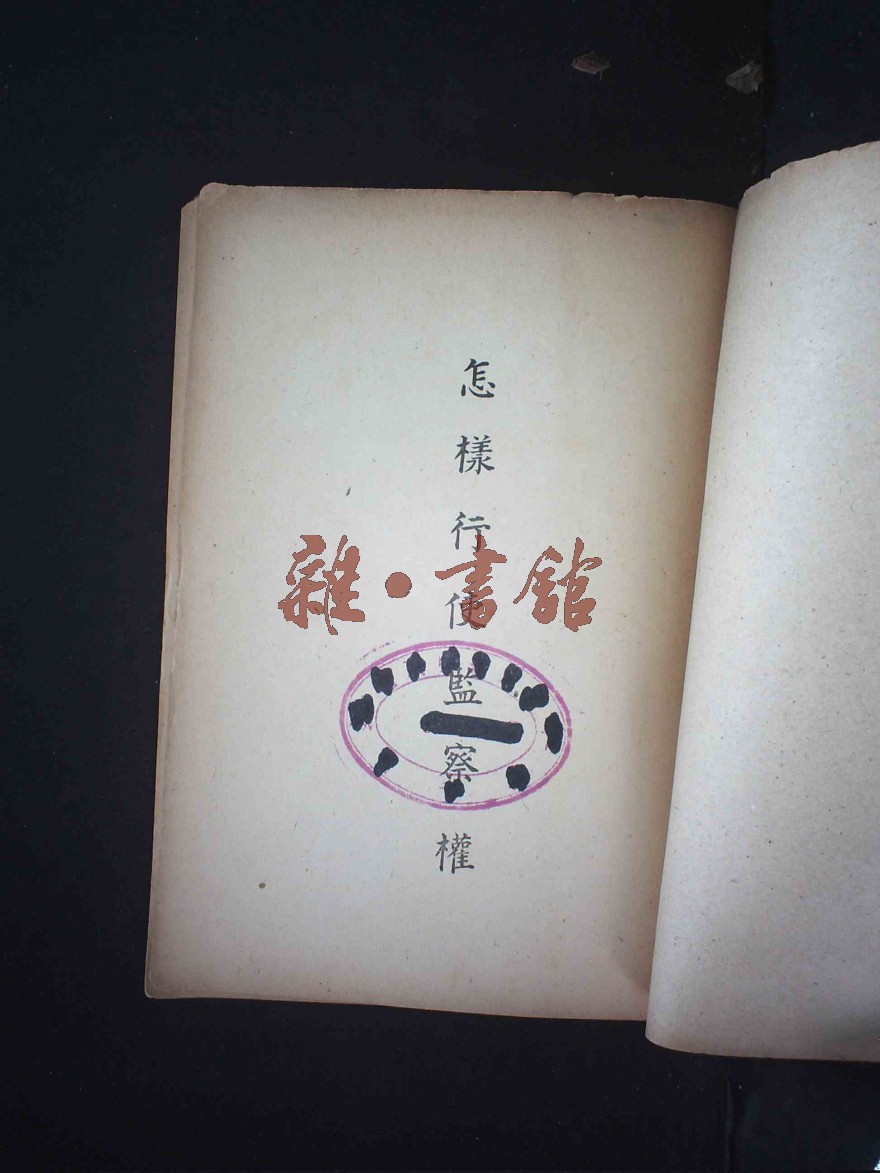 怎樣行使監察權
雜·書館